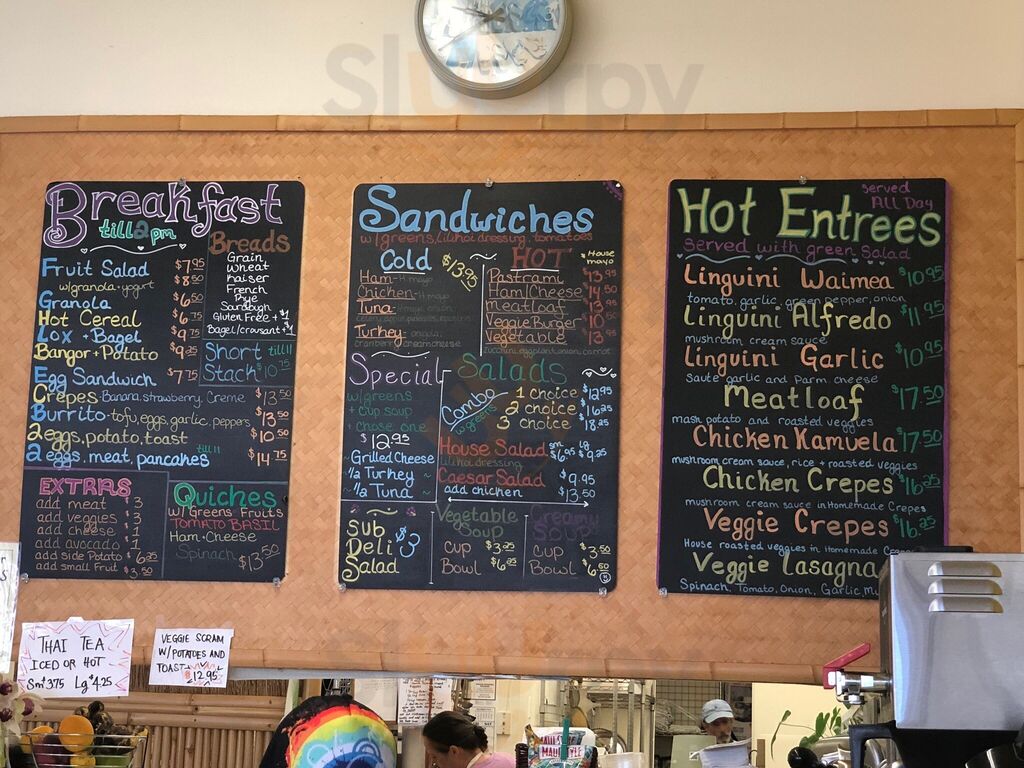 Slurrpy
Breakfast
till 2 pm
Fruit Salad $7.95
w/granola + yogurt $8.50
Granola $6.50
Hot Cereal $6.75
Lox + Bagel $9.75
Bangor + Potato $9.25
Egg Sandwich $7.75
Crepes Banana, strawberry, Creme $13.50
Burrito - tofu, eggs, garlic, peppers $13.50
2 eggs, potato, toast $10.50
2 eggs, meat, pancakes till 11 $14.75
Breads
Grain
Wheat
Kaiser
French
Rye
Sourdough
Gluten Free + $1
Bagel/crousant + $1
Short till 11
Stack $10.75
EXTRAS
add meat 3
add veggies 3
add cheese 1
add avocado 1
add side Potato $6.25
add small Fruit $3.50
Quiches
w/Greens Fruits
TOMATO BASIL
Ham + Cheese
Spinach $13.50
Sandwiches
w/greens, lilikoi dressing, tomatoes
Cold $13.95
Ham - H mayo
Chicken - H mayo
Tuna
Turkey
cranberry creamcheese
HOT
* House mayo
Pastrami $13.95
Ham/Cheese $14.50
meatloaf $13.95
Veggie Burger $10.50
Vegetable $13.50
zucchini, eggplant, onion, carrot
Special
w/greens
+ cup soup
+ chose one
$12.95
~Grilled Cheese
1/2 Turkey ~
~ 1/2 Tuna ~
Salads
Combo
greens
1 choice $12.95
2 choice $16.25
3 choice $18.25
House Salad sm $6.95 Lg $9.25
lilikoi dressing
Caesar Salad $9.95
add chicken $13.50
Sub
Deli $3
Salad
Vegetable
Soup
Cup $3.25
Bowl $6.25
Creamy
Soup
Cup $3.50
Bowl $6.50
Hot Entrees
Served
ALL Day
Served with green Salad
Linguini Waimea $10.95
tomato, garlic, green pepper, onion
Linguini Alfredo $11.95
mushroom cream sauce
Linguini Garlic $10.95
Saute garlic and Parm cheese
Meatloaf $17.50
mash potato and roasted veggies
Chicken Kamuela $17.50
mushroom cream sauce, rice + roasted veggies
Chicken Crepes $16.25
mushroom cream sauce in Homemade Crepes
Veggie Crepes $16.25
House roasted veggies in Homemade
Veggie Lasagna
Spinach, Tomato, Onion, Garlic
THAI TEA
ICED OR HOT
Sm $3.75 Lg $4.25
VEGGIE SCRAM
W/POTATOES AND
TOAST $12.95